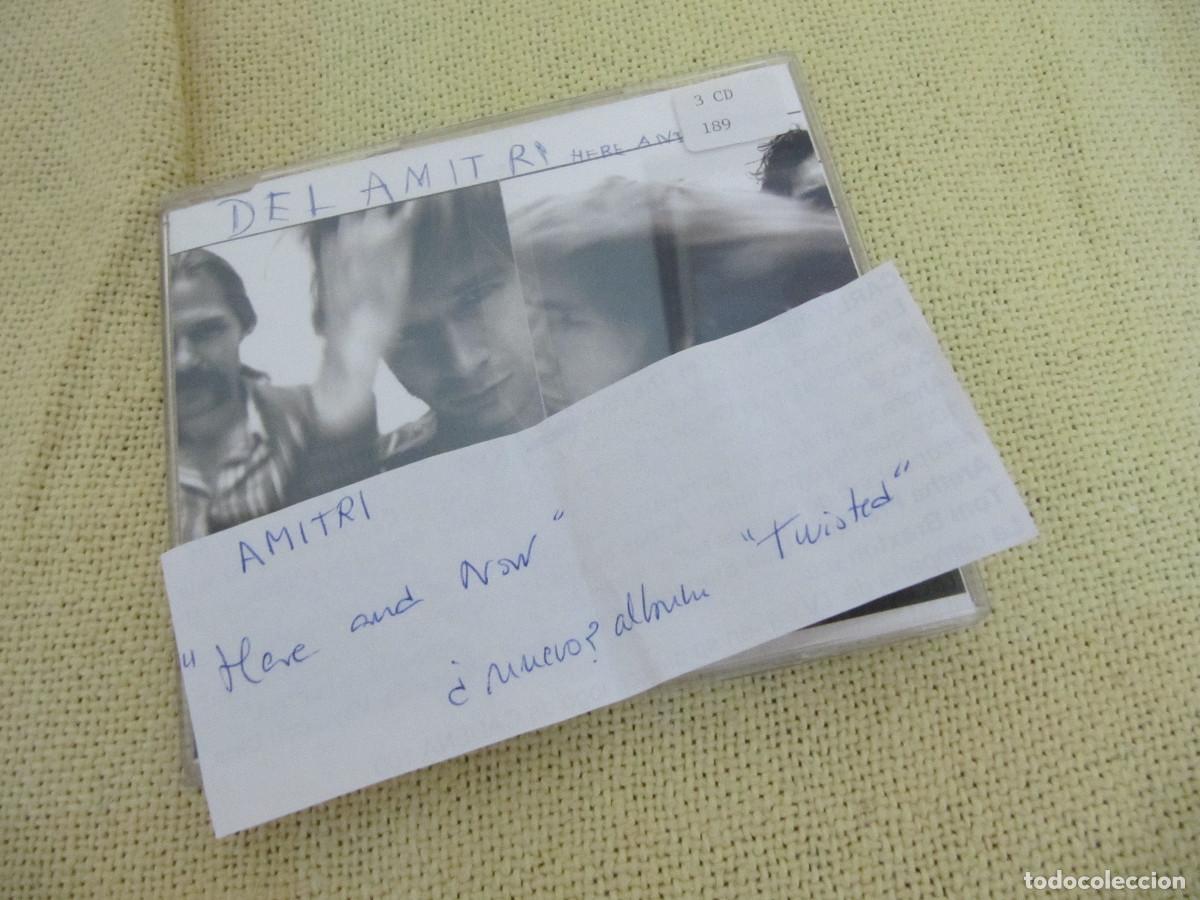 DEL AMITRI HERE AND
3 CD
189
AMITRI
"Here and Now"
¿nuevo? album "Twisted"
todocoleccion